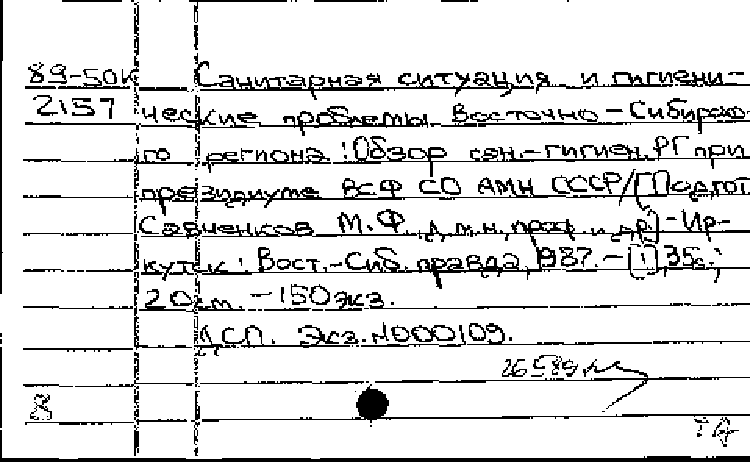 89-50к Санитарная ситуация и гигиени-
2157 ческие проблемы Восточно-Сибирско-
го региона: Обзор сан.-гигиен. РГ при
президиуме ВСФ СО АМН СССР/[Подгот.
Савченков М.Ф., д.м.н., проф. и др.]-Ир-
кутск: Вост.-Сиб. правда, 1987.-[1], 35с.;
20см. -150экз.
ДСП. Экз. N000109.
26589
8